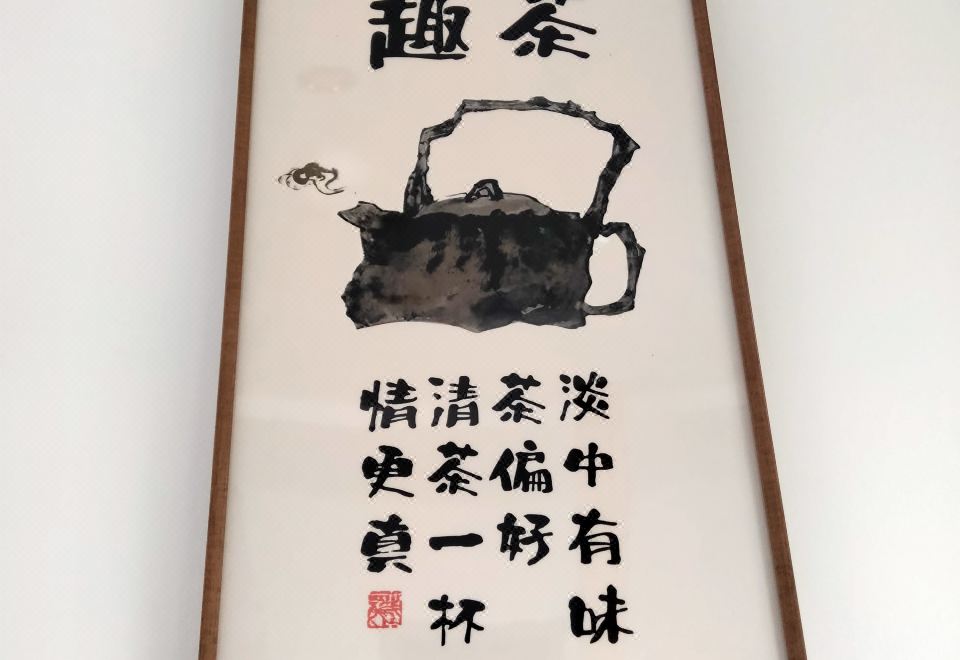 茶趣
淡中有味
茶偏好
清茶一杯
情更真